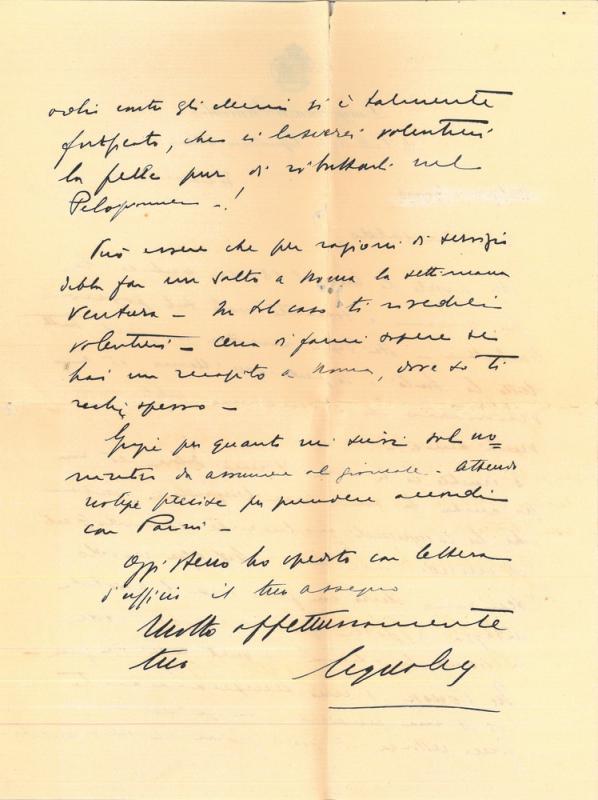 contro gli elleni si è talmente
fortificato, che ci lascerei volentieri
la pelle pur di ributtarli nel
Peloponneso — !
Può essere che per ragioni di servizio
debba far un salto a Roma la settimana
ventura — In tal caso ti rivedrei
volentieri — Cerca di farmi sapere se
hai un recapito a Roma, dove so ti
rechi spesso —
Grazie per quanto mi scrivi sul no=
minativo da assumere al giornale — Attendo
notizie precise per prendere accordi
con Parini —
Oggi stesso ho spedito con lettera
d'ufficio il tuo assegno
Molto affettuosamente
tuo